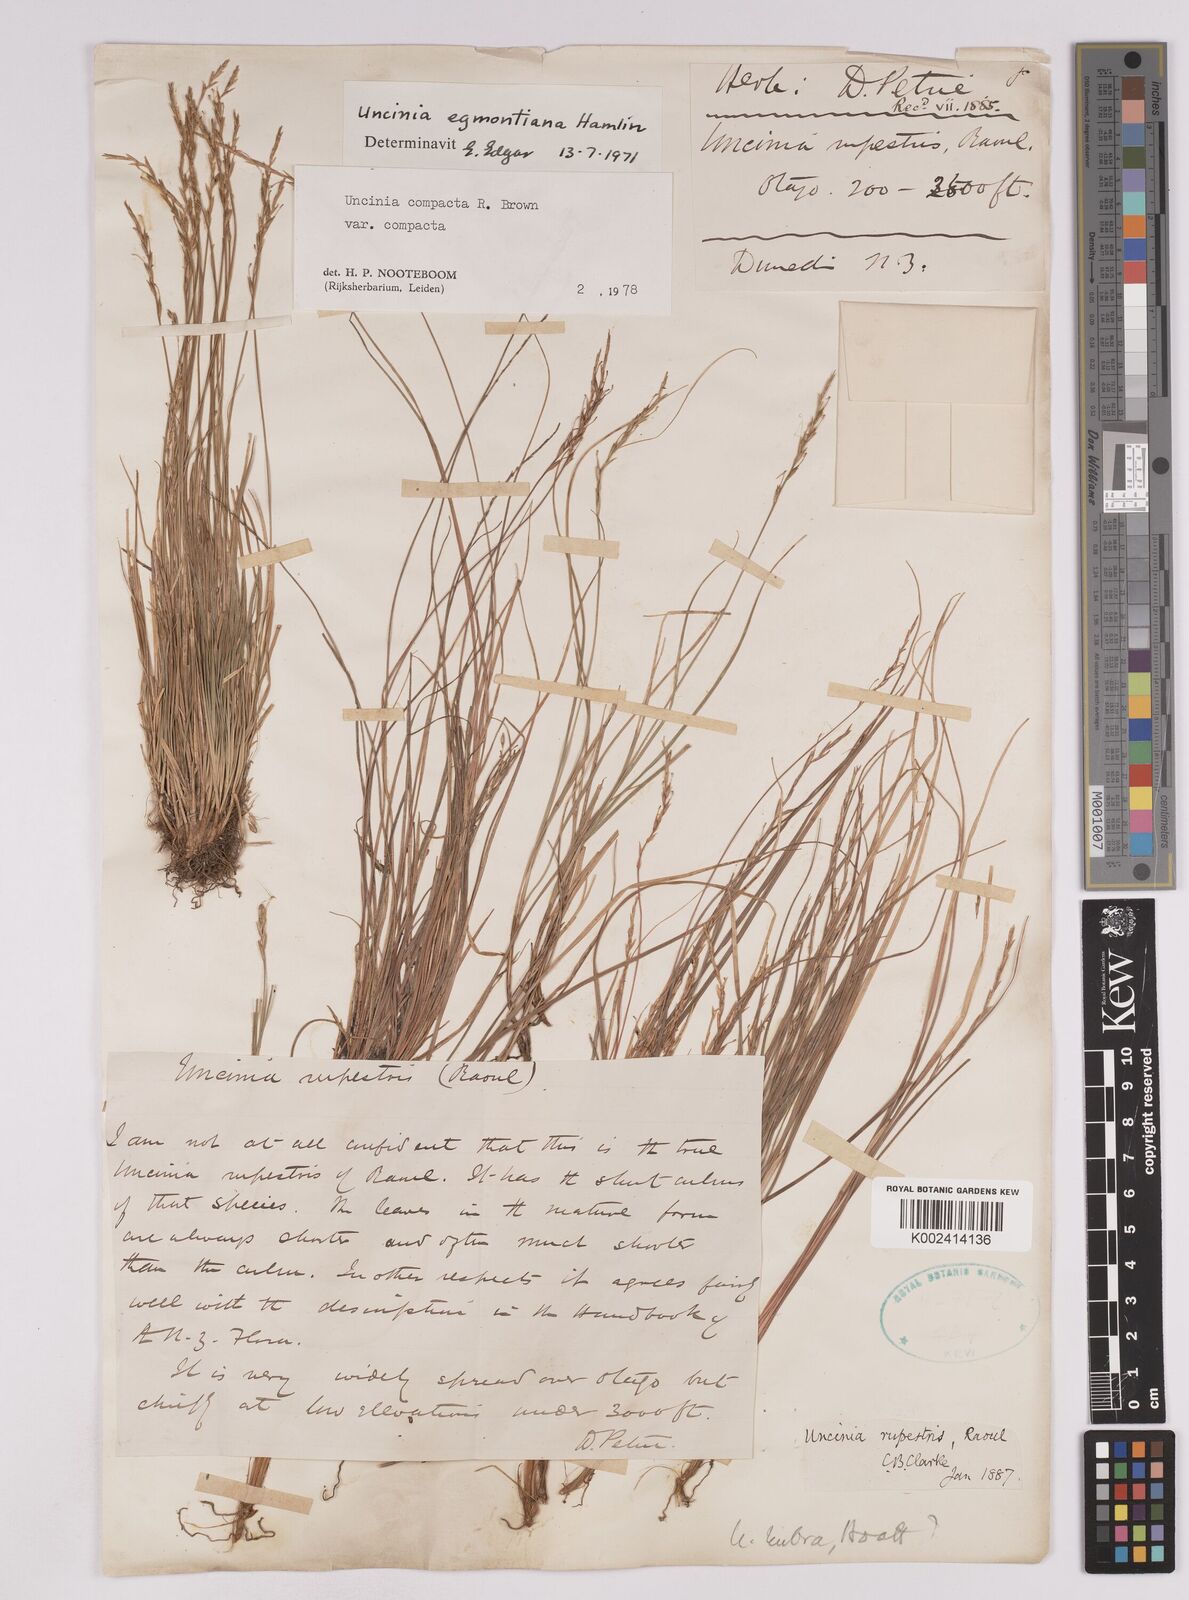 Uncinia egmontiana Hamlin
Determinavit E. Edgar 13-7-1971
Uncinia compacta R. Brown
var. compacta
det. H. P. NOOTEBOOM
(Rijksherbarium, Leiden)
2 . 1978
Herb: D. Petrie
Recd. vii. 1885.
Uncinia rupestris, Raoul.
Otago. 200 - 3500 ft.
Dunedin N Z.
Uncinia rupestris (Raoul)
I am not at all confident that this is the true
Uncinia rupestris of Raoul. It has the short culms
of that species. The leaves in the mature form
are always shorter and often much shorter
than the culm. In other respects it agrees fairly
well with the description in the Handbook of
the N. Z. Flora.
It is very widely spread over Otago but
chiefly at low elevations under 3000 ft.
D. Petrie.
ROYAL BOTANIC GARDENS KEW
K002414136
ROYAL BOTANIC GARDENS
KEW
Uncinia rupestris, Raoul
C.B. Clarke
Jan 1887.
U. rubra, Boott ?
inches
centimeters
Don Williams
M001007
Royal Botanic Gardens
Kew
copyright reserved
0 1 2 3 4 5 6 7 8 9 10
cm